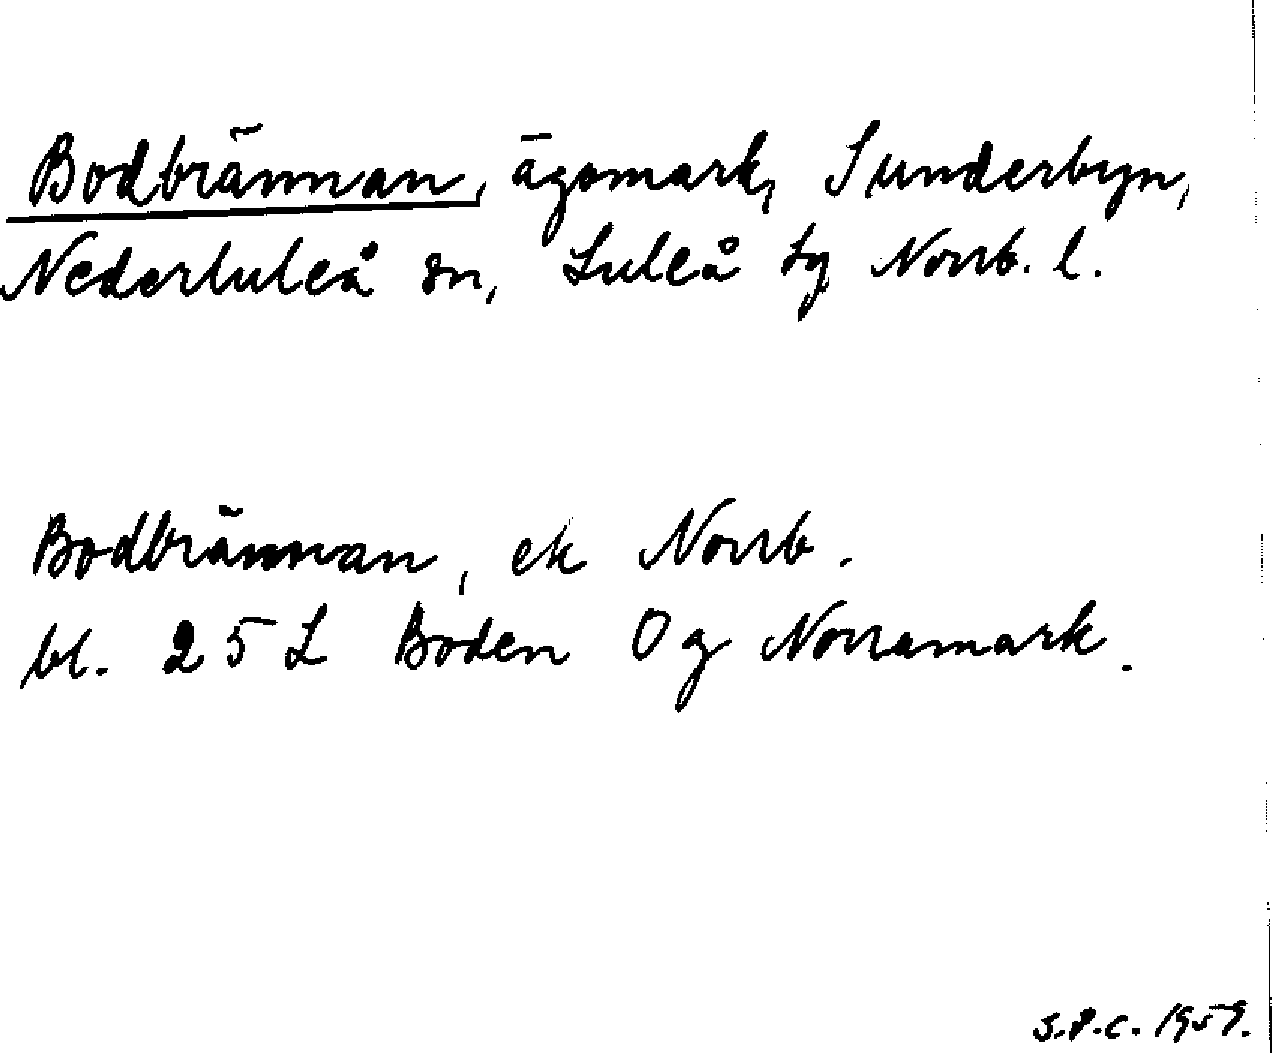 Bodbrännan, ägomark, Sunderbyn,
Nederluleå sn, Luleå tg Norrb. l.
Bodbrännan, ek Norrb.
bl. 25 L Boden Og Norramark.
S.P.C. 1959.